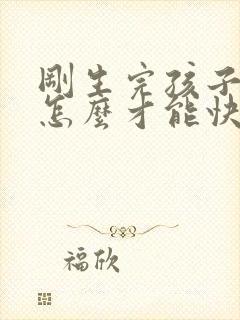 剛生完孩子
怎麼才能快
福欣